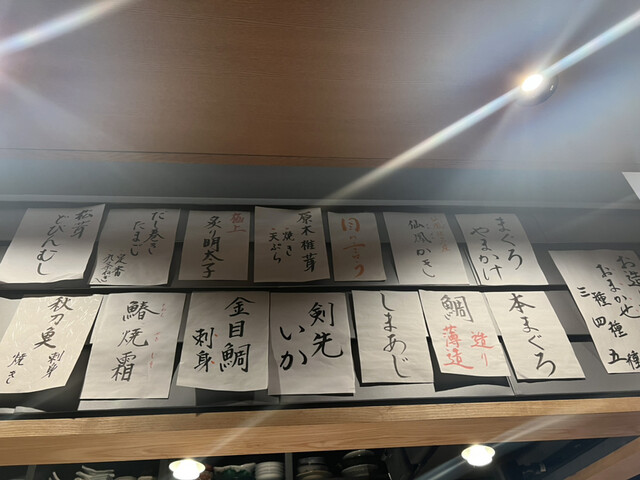 まぐろ
やまかけ
仙鳳かき
原木椎茸
焼き
天ぷら
極上
炙り明太子
だし巻き
たまご
定番
松茸
どびんむし
お造り
おまかせ
三種 四種 五種
本まぐろ
鯛
造り
薄造
しまあじ
剣先
いか
金目鯛
刺身
鰆
焼霜
秋刀魚
刺身
焼き